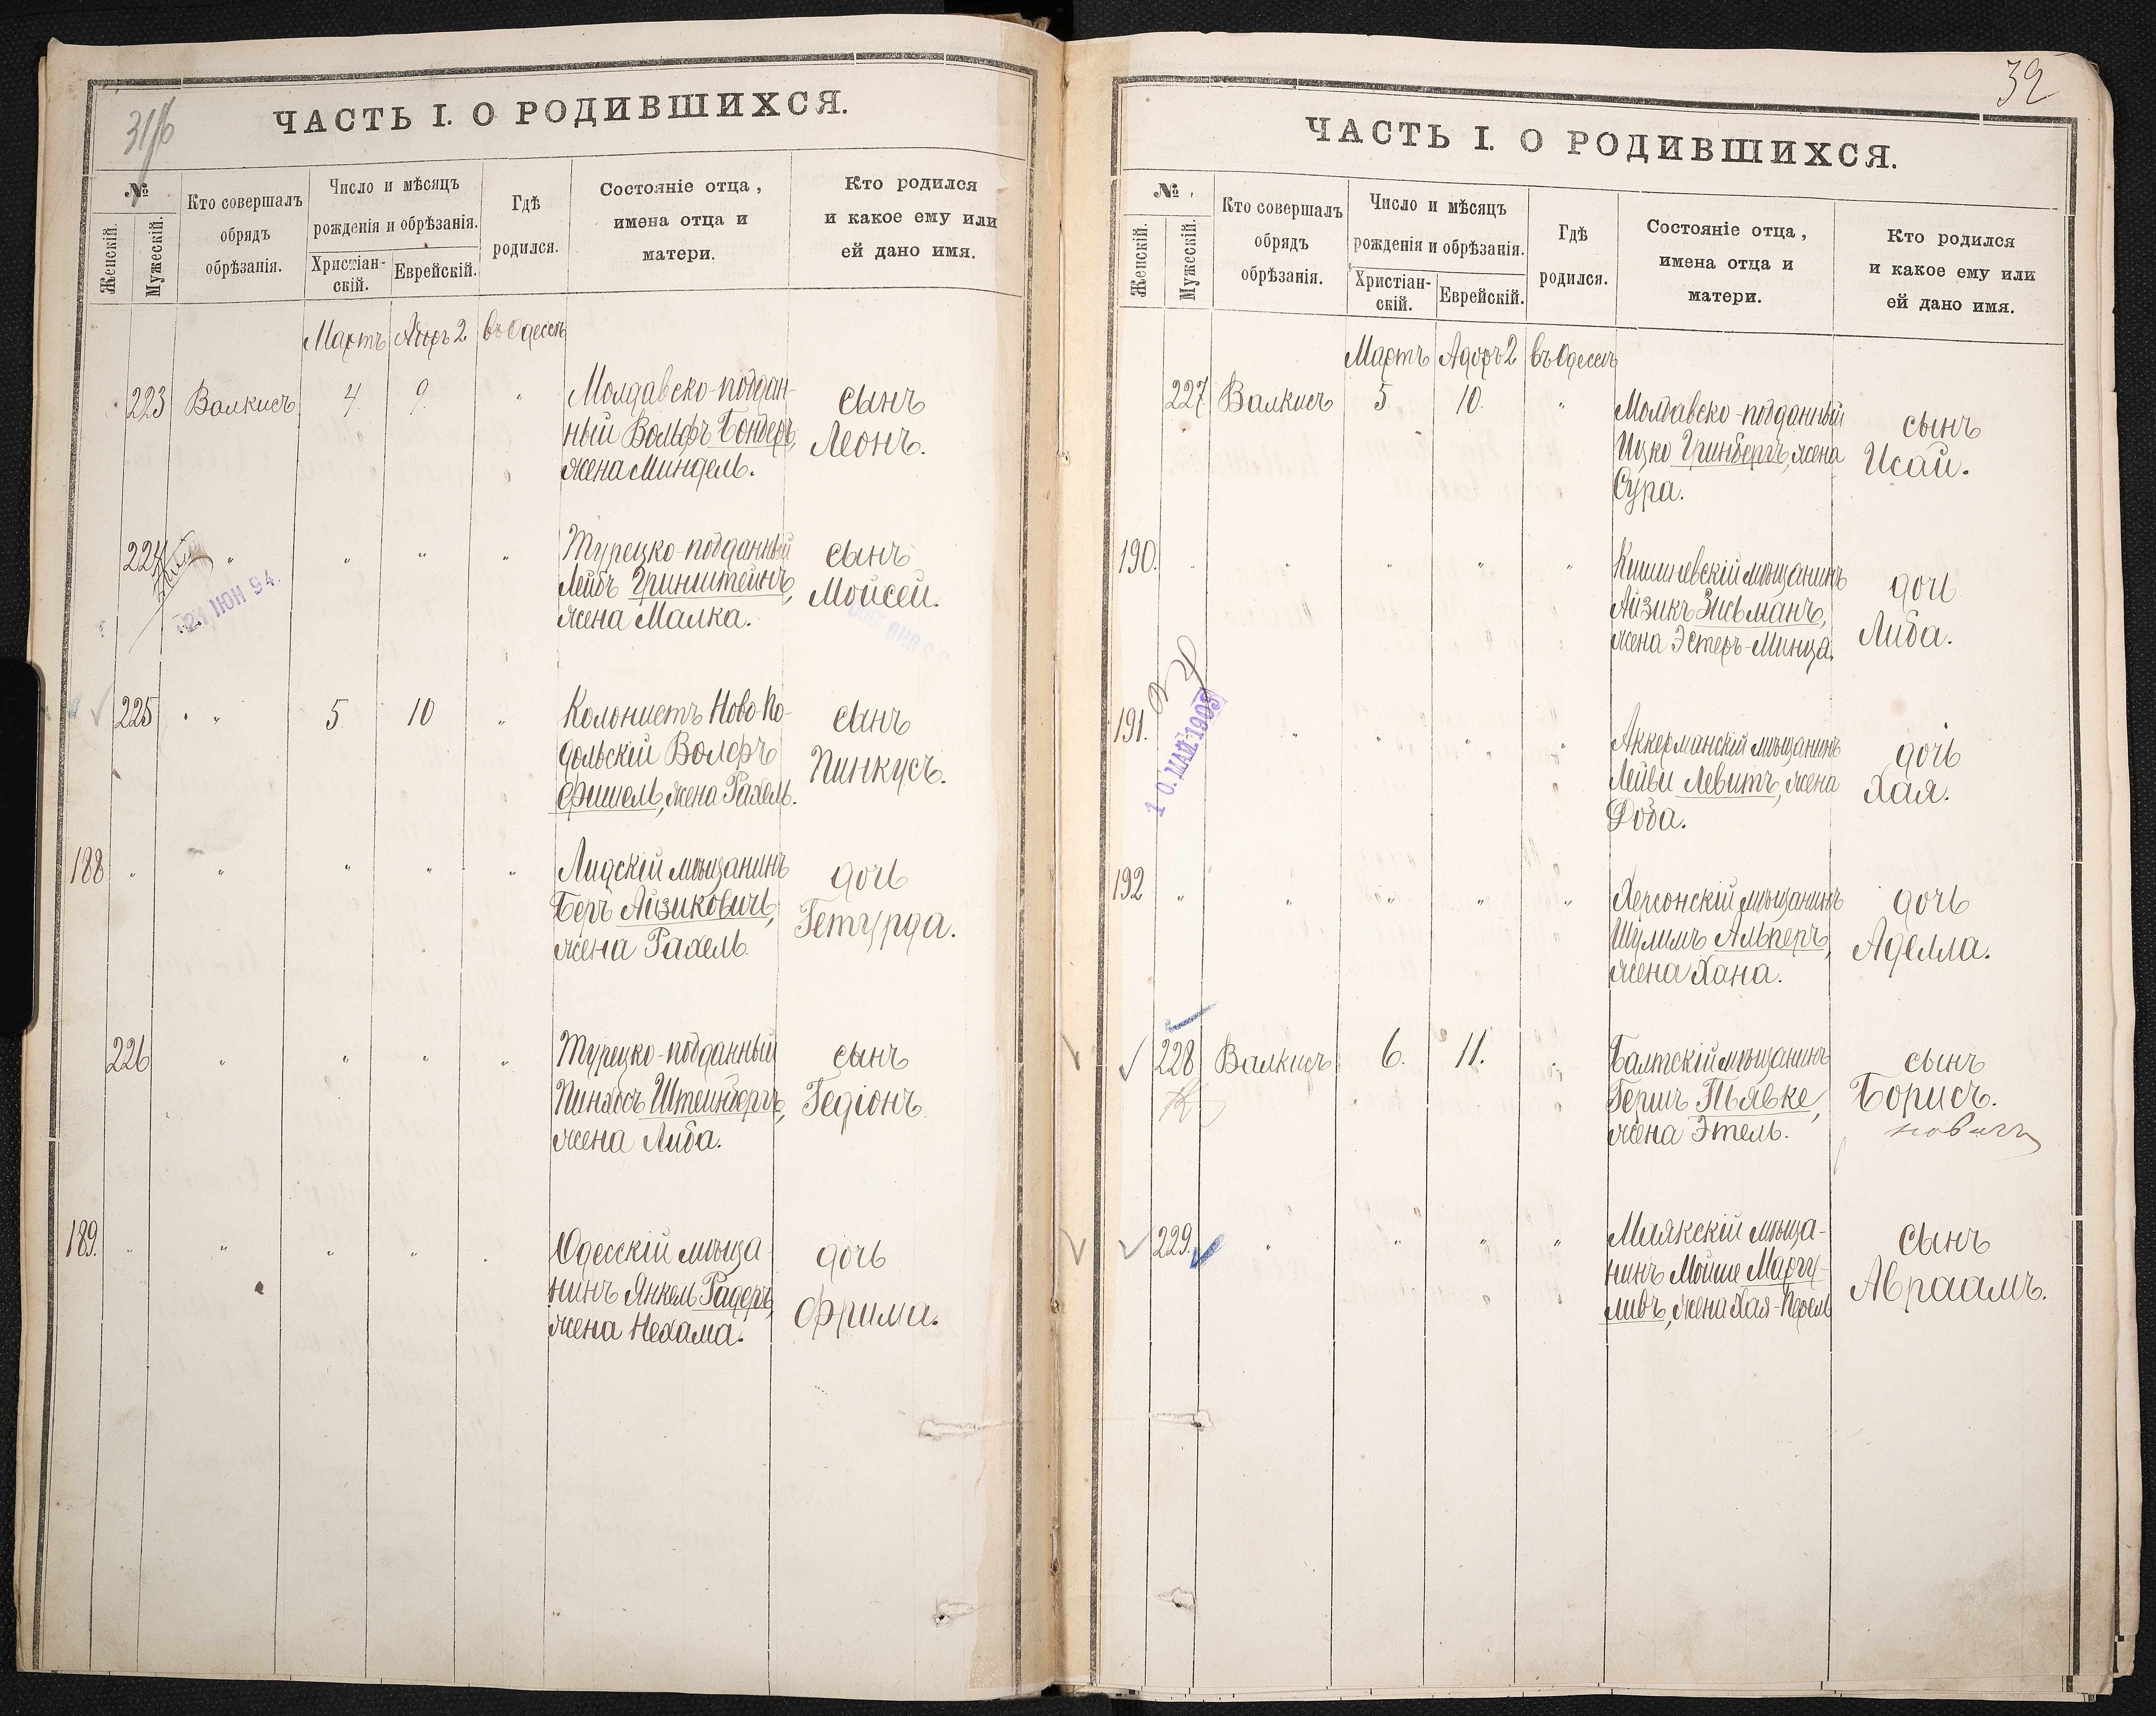 ЧАСТЬ I. О РОДИВШИХСЯ.
№
Женскій.
Мужескій.
Кто совершалъ
обрядъ
обрѣзанія.
Число и мѣсяцъ
рожденія и обрѣзанія.
Христіан-
скій.
Еврейскій.
Гдѣ
родился.
Состояніе отца,
имена отца и
матери.
Кто родился
и какое ему или
ей дано имя.
Мартъ Адаръ 2 въ Одессѣ
223 Валкисъ 4. 9. "
Молдавско-поддан-
ный Вольфъ Бондеръ,
жена Миндель.
сынъ
Леонъ.
224 " " " "
21 ІЮН 94.
Турецко-подданный
Лейбъ Гринштейнъ,
жена Малка.
сынъ
Мойсей.
225 " 5 10 "
Колонистъ Ново-По-
дольскій Волфъ
Фишель, жена Рахель.
сынъ
Пинкусъ.
188 " " " " "
Лидскій мѣщанинъ
Беръ Айзиковичъ,
жена Рахель.
дочь
Гетрурда.
226 " " " "
Турецко-подданный
Пинхосъ Штейнбергъ,
жена Либа.
сынъ
Гедіонъ
189. " " " " "
Одесскій мѣща-
нинъ Янкель Радеръ,
жена Нехама.
дочь
Фрима.
32
ЧАСТЬ I. О РОДИВШИХСЯ.
№
Женскій.
Мужескій.
Кто совершалъ
обрядъ
обрѣзанія.
Число и мѣсяцъ
рожденія и обрѣзанія.
Христіан-
скій.
Еврейскій.
Гдѣ
родился.
Состояніе отца,
имена отца и
матери.
Кто родился
и какое ему или
ей дано имя.
Мартъ Адаръ 2 въ Одессѣ
227 Валкисъ 5. 10. "
Молдавско-подданный
Ицко Гринбергъ, жена
Сура.
сынъ
Исай.
190. " " " " "
Кишиневскій мѣщанинъ
Айзикъ Зисьманъ,
жена Эстеръ-Минца.
дочь
Либа.
191. " " " "
10. МАЙ 1905
Аккерманскій мѣщанинъ
Лейви Левитъ, жена
Доба.
дочь
Хая.
192 " " " " "
Херсонскій мѣщанинъ
Шулимъ Альперъ,
жена Хана.
дочь
Аделла.
228 Валкисъ 6. 11. "
Балтскій мѣщанинъ
Гершъ Пьявке,
жена Этель.
сынъ
Борисъ.
229. " " " "
Маякскій мѣща-
нинъ Мойше Маргу-
ливъ, жена Хая-Перель
сынъ
Авраамъ.